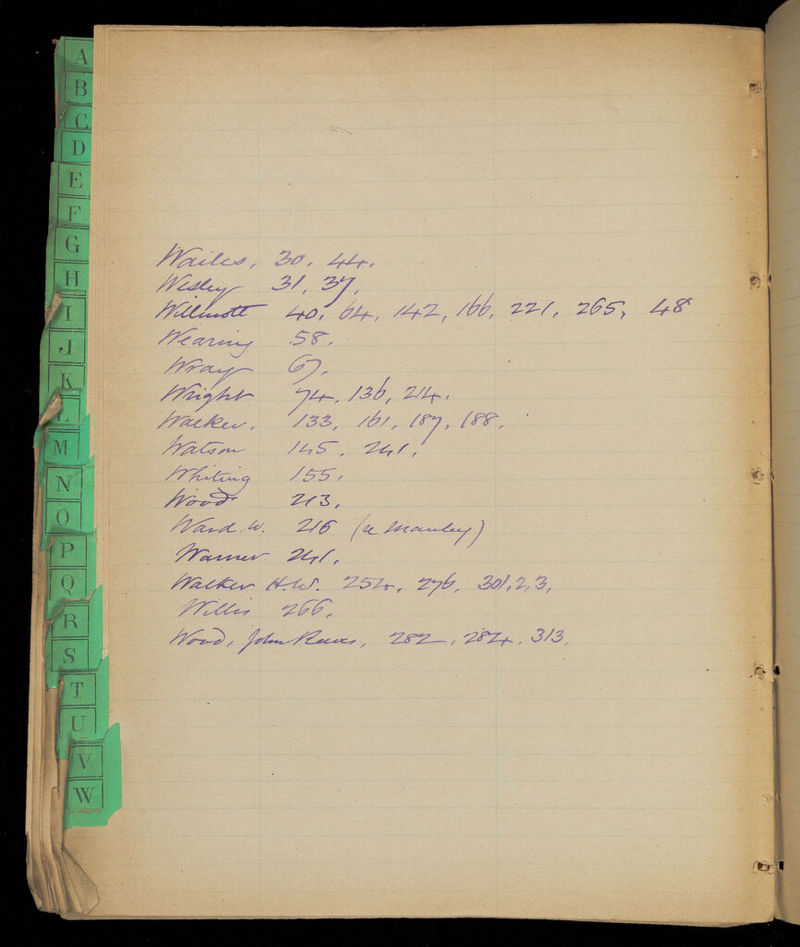 A
B
C
D
E
F
G
H
I
J
K
L
M
N
O
P
Q
R
S
T
U
V
W
Wailes, 30, 44.
Wesley 31, 37,
Willmott 40, 64, 142, 166, 221, 265, 48
Wearing 58.
Wray 67.
Wright 74, 136, 214.
Walker, 133, 161, 187, 188.
Watson 145, 241,
Whiting 155,
Wood 213,
Ward. W. 216 (re Manley)
Warner 241,
Walker H.W. 254, 276, 301,2,3,
Willis 266,
Wood, John 282, 284, 313,